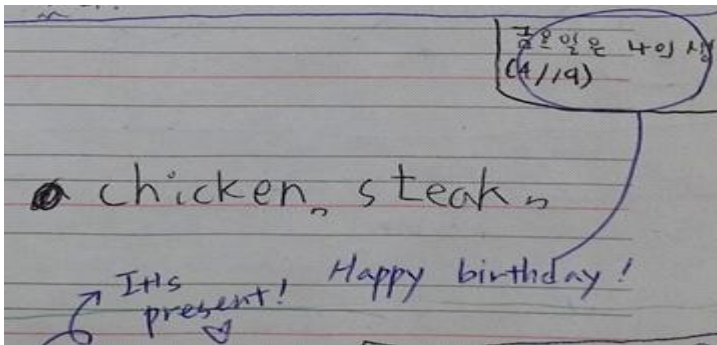 금요일은 나의 생
(4/19)
a chicken, steak,
Happy birthday!
It's
present!